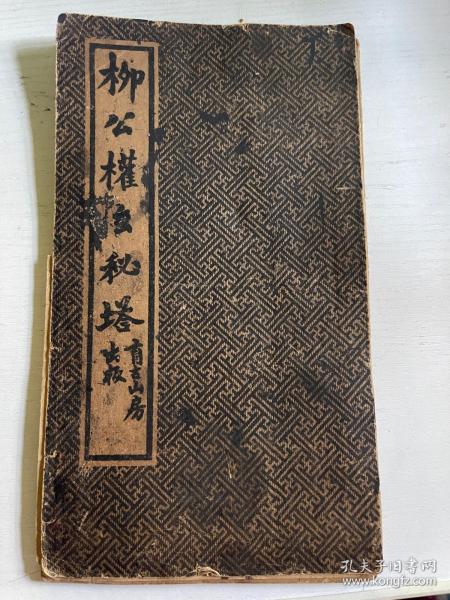 柳公權玄秘塔
育古山房
出版
孔夫子旧书网
www.kongfz.com